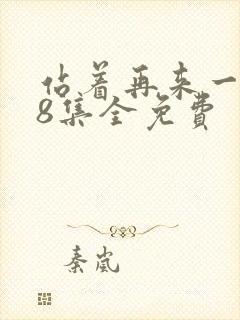 站着再来一
8集全免费
秦岚